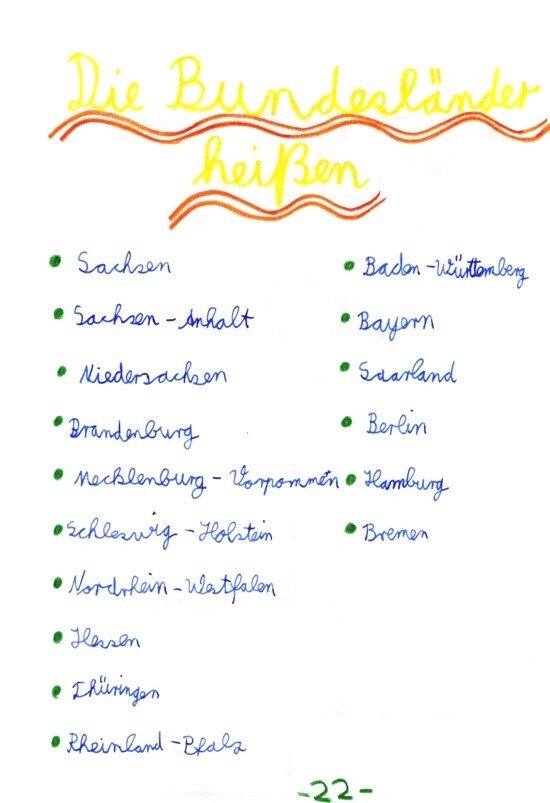 Die Bundesländer
heißen
Sachsen
Sachsen-Anhalt
Niedersachsen
Brandenburg
Mecklenburg-Vorpommern
Schleswig-Holstein
Nordrhein-Westfalen
Hessen
Thüringen
Rheinland-Pfalz
Baden-Württemberg
Bayern
Saarland
Berlin
Hamburg
Bremen
-22-